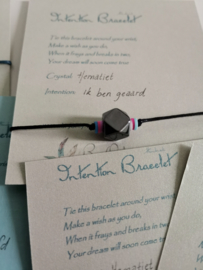 Intention Bracelet
Tie this bracelet around your wrist
Make a wish as you do,
When it frays and breaks in two,
Your dream will soon come
Crystal: Hematiet
Intention: ik ben geaard
Intention Bracelet
Tie this bracelet around your wrist
Make a wish as you do,
When it frays and breaks in two,
Your dream will soon come true
Hematiet